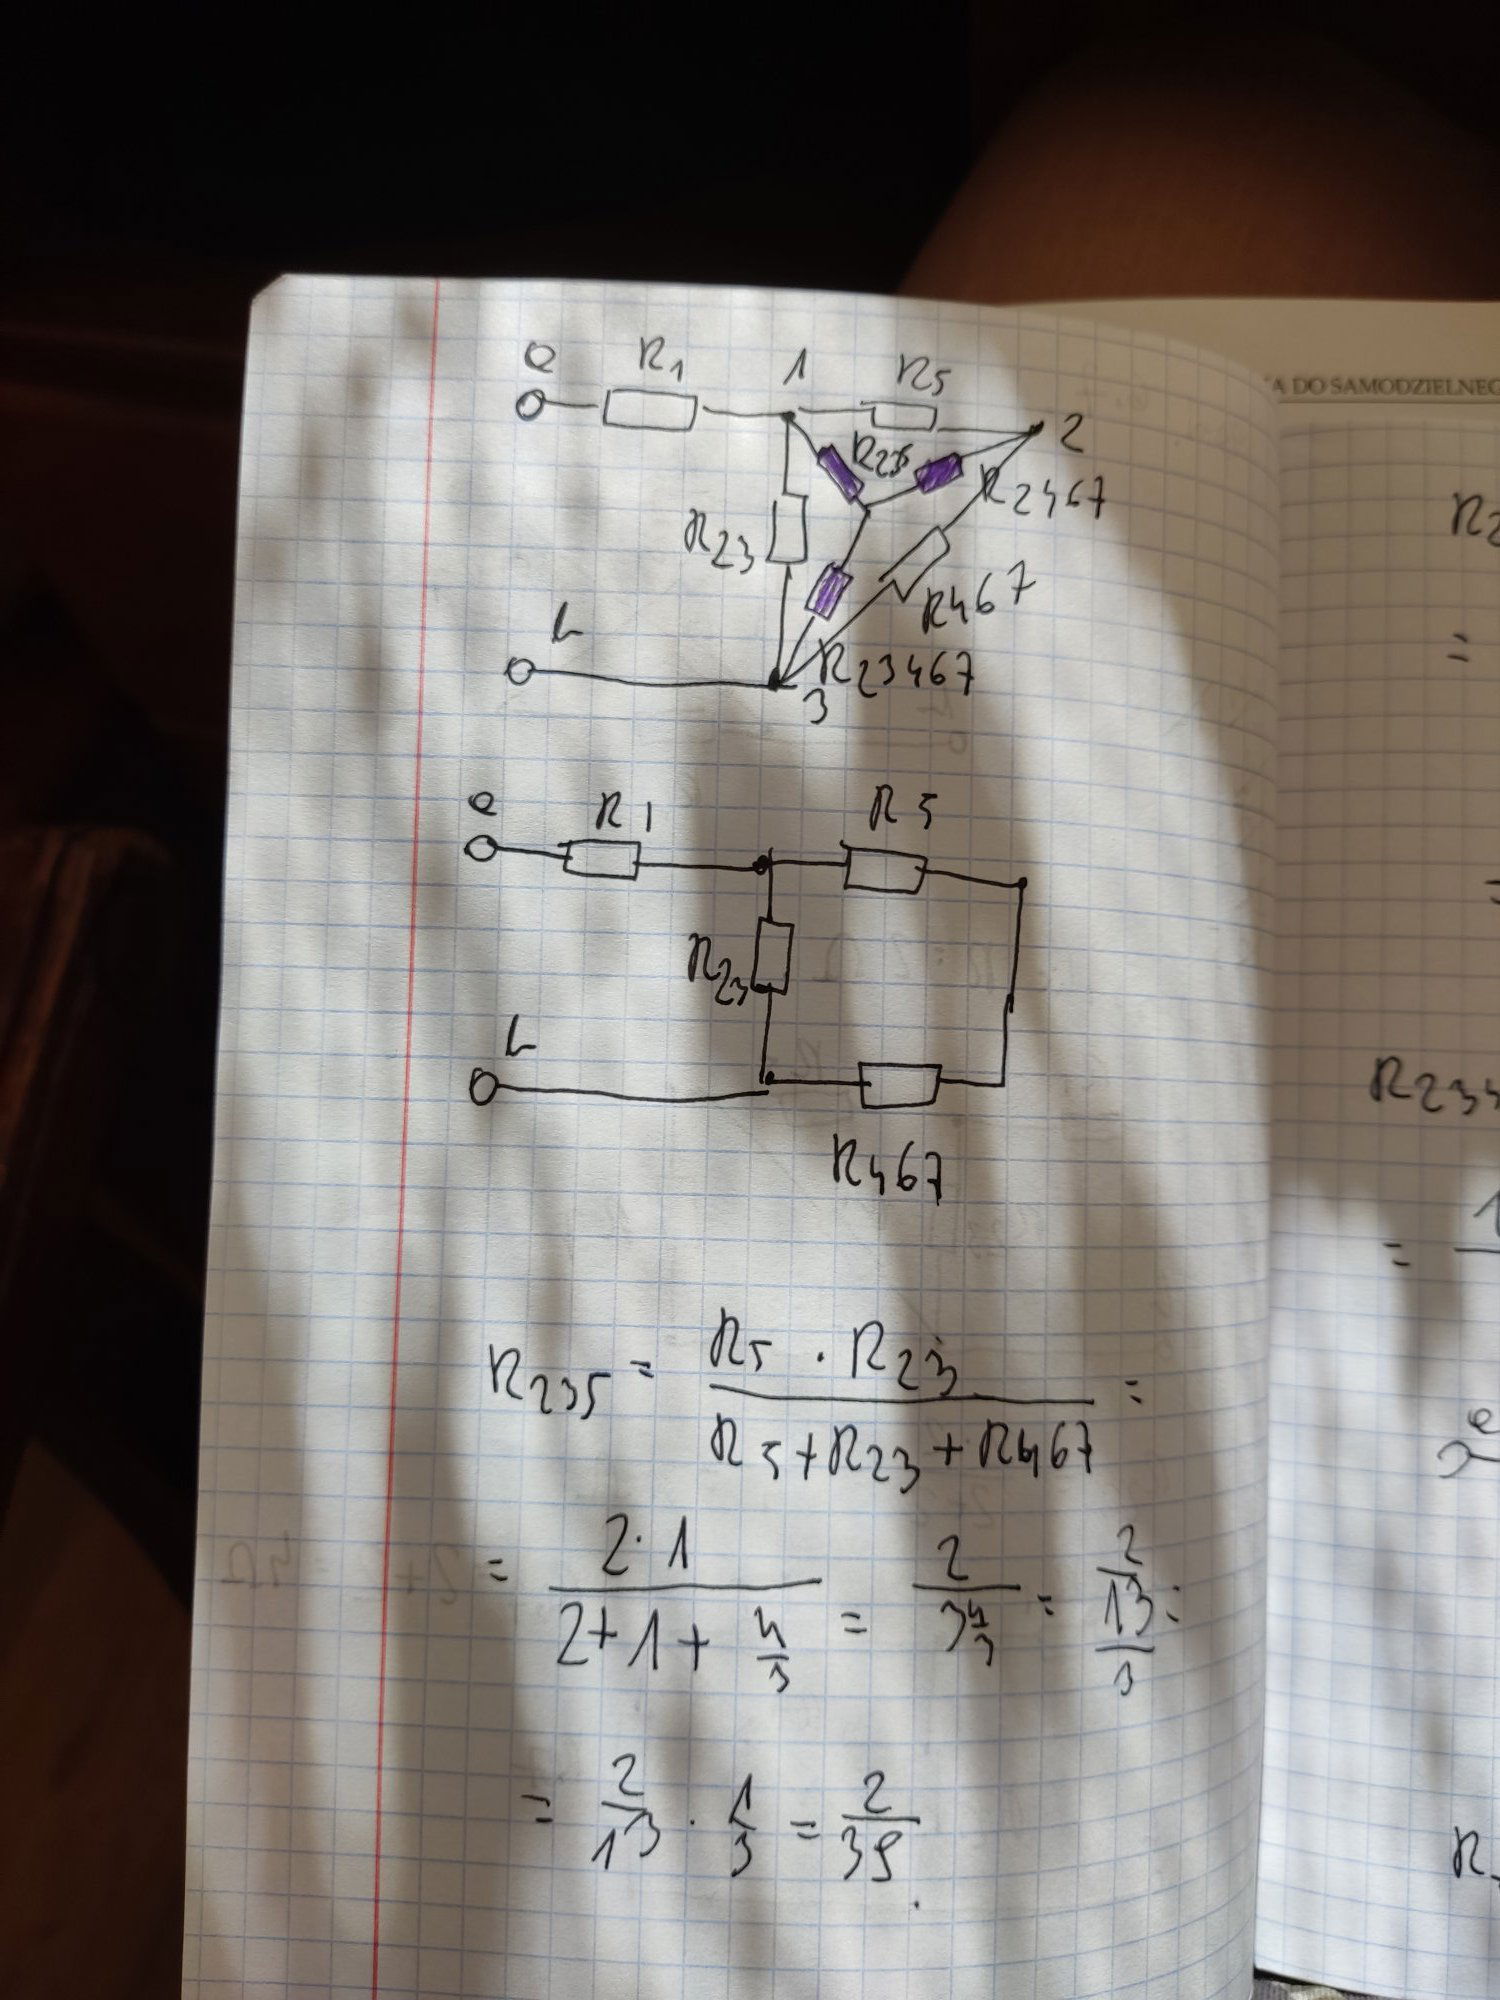 a R1 1 R5
2
R235
R2467
R23
R467
b
R23467
3
a R1 R5
R23
b
R467
R235 = R5 · R23 / R5+R23+R467 =
= 2·1 / 2+1+ 4/3 = 2 / 3 4/3 = 2 / 13/3 =
= 2/13 · 1/3 = 2/39
A DO SAMODZIELNEG
=
=
a